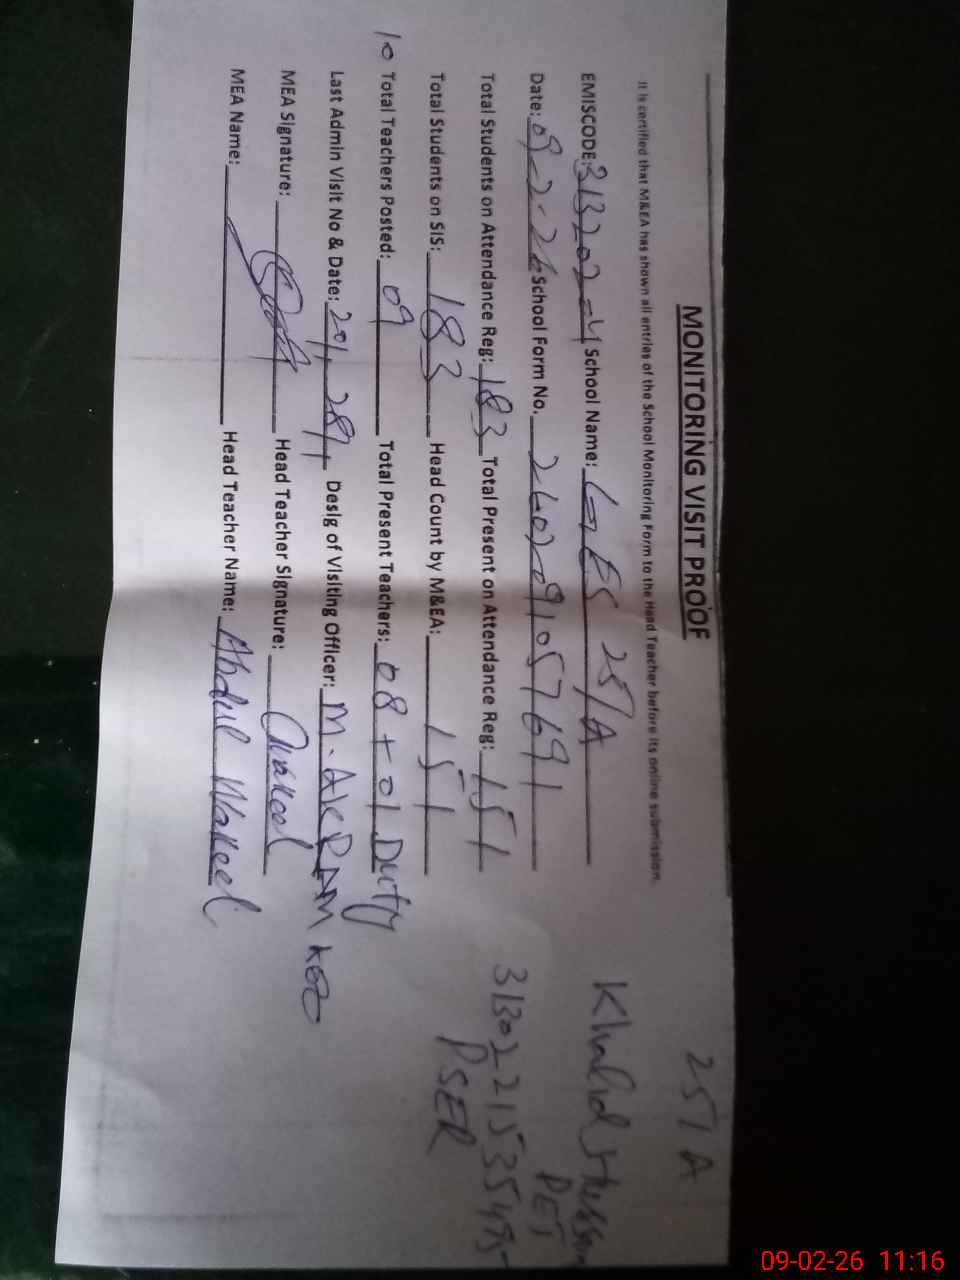 MONITORING VISIT PROOF
25/A
It is certified that M&EA has shown all entries of the School Monitoring Form to the Head Teacher before its online submission.
EMISCODE: School Name: GES 25/A
Khalid Hussain
PET
Date: 09-2-26 School Form No. 2602091057691
Total Students on Attendance Reg: 183 Total Present on Attendance Reg: 151
Total Students on SIS: 183 Head Count by M&EA: 151
PSER
10 Total Teachers Posted: 09 Total Present Teachers: 08 + 01 Duty
Last Admin Visit No & Date: Desig of Visiting Officer: M. AKRAM
MEA Signature: Head Teacher Signature: Wakeel
MEA Name: Head Teacher Name: Abdul Wakeel
09-02-26 11:16